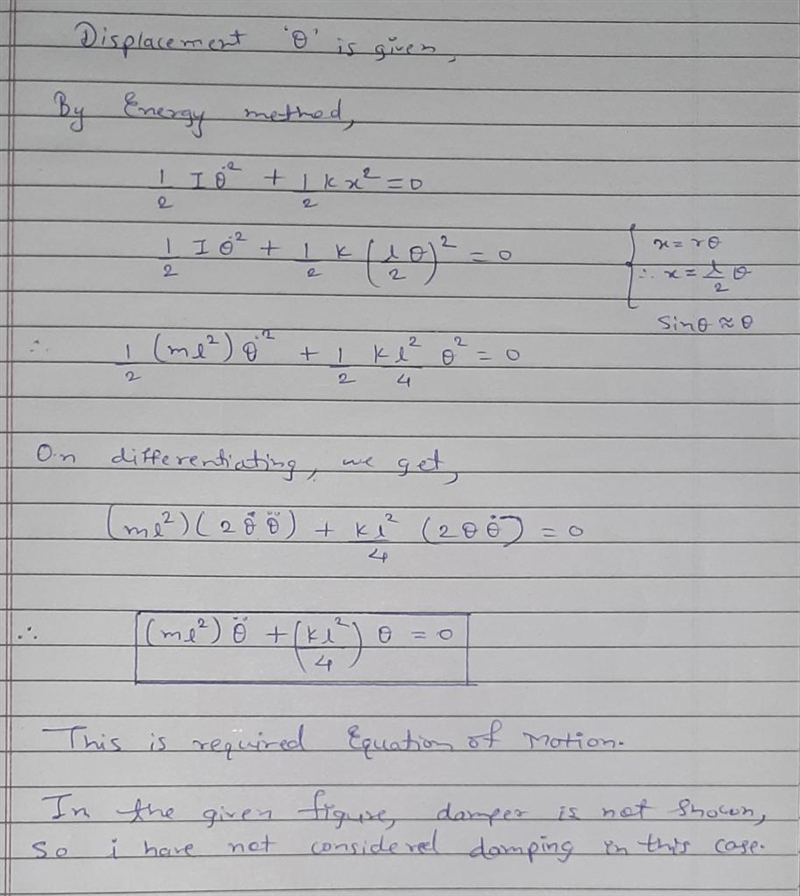 Displacement 'θ' is given,
By Energy method,
1/2 I θ̇² + 1/2 k x² = 0
1/2 I θ̇² + 1/2 k (lθ/2)² = 0
{ x = rθ
∴ x = l/2 θ
sinθ ≈ θ
∴ 1/2 (ml²) θ̇² + 1/2 kl²/4 θ² = 0
On differentiating, we get,
(ml²)(2 θ̇ θ̈) + kl²/4 (2 θ θ̇) = 0
∴ (ml²) θ̈ + (kl²/4) θ = 0
This is required Equation of Motion.
In the given figure, damper is not shown,
so i have not considered damping in this case.